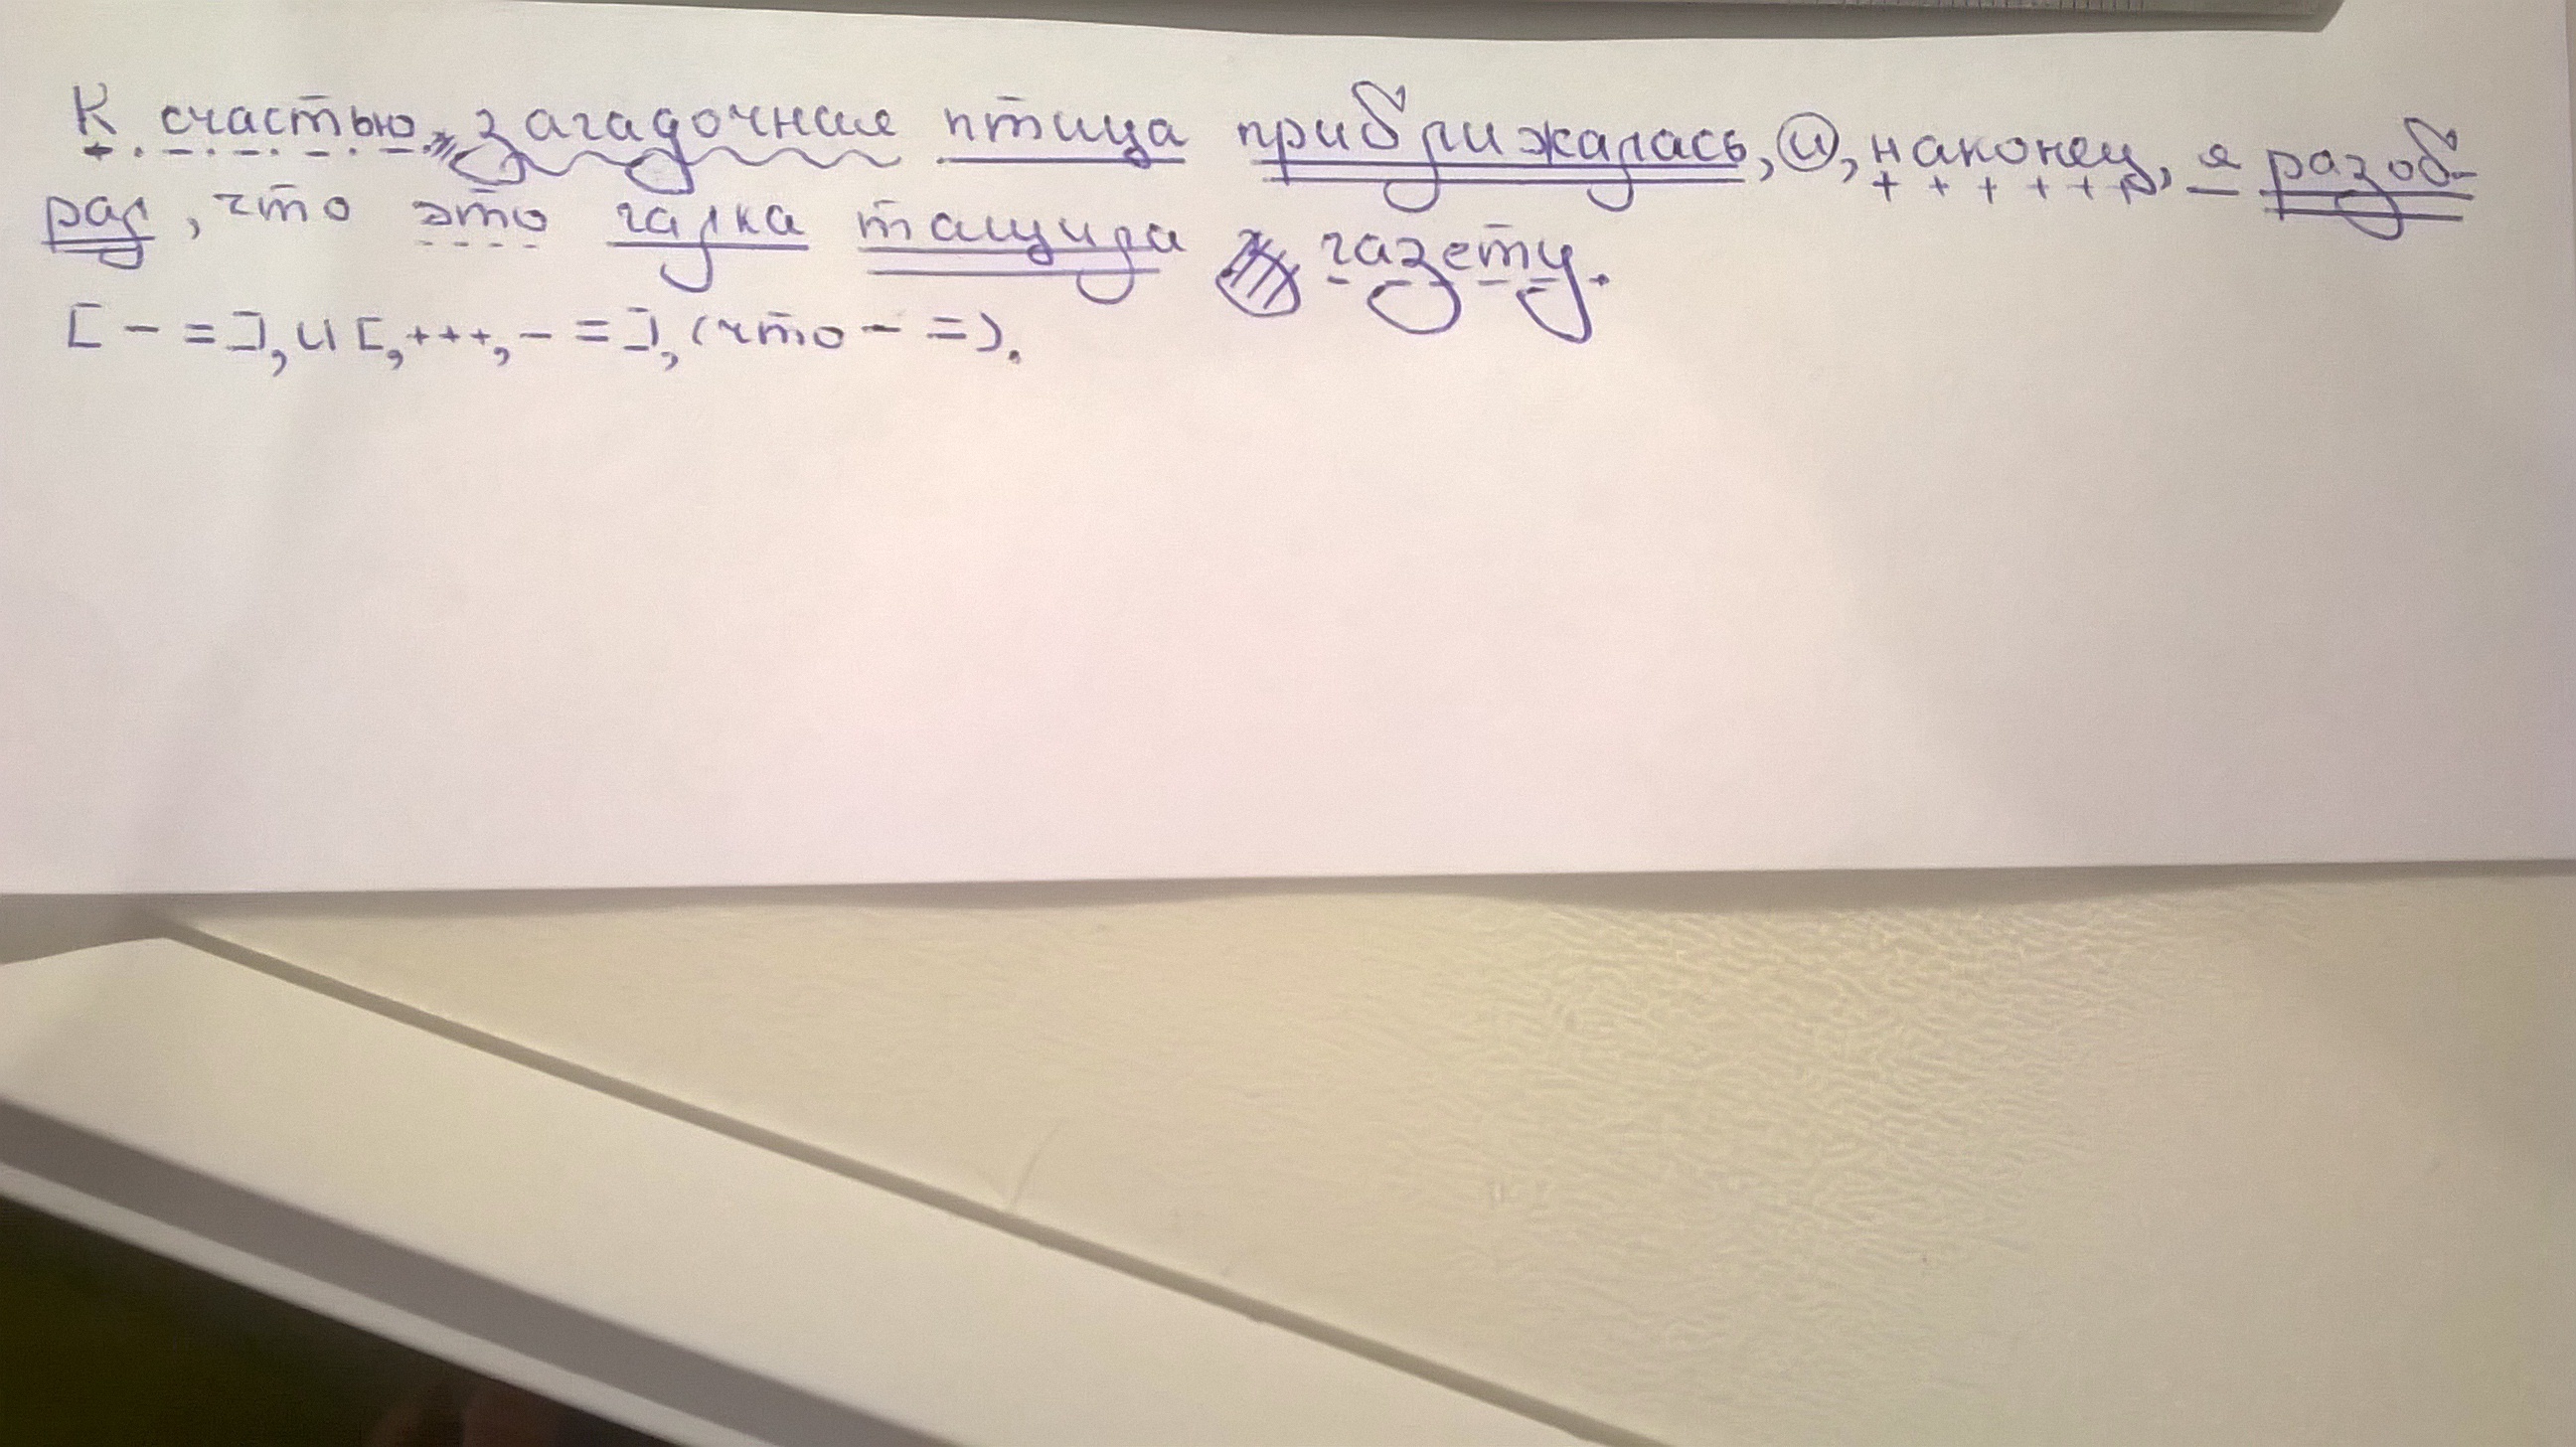 К счастью, загадочная птица приближалась, и, наконец, я разоб-
рал, что это галка тащила газету.
[ - = ], и [, +++, - = ], (что - = ).